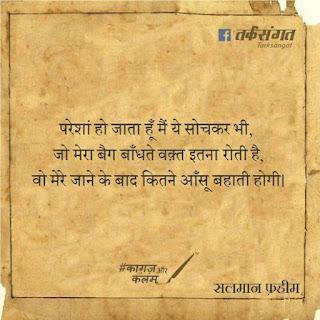 तर्कसंगत
Tarksangat
परेशां हो जाता हूँ मैं ये सोचकर भी,
जो मेरा बैग बाँधते वक़्त इतना रोती है,
वो मेरे जाने के बाद कितने आँसू बहाती होगी।
#काग़ज़ और
कलम
सलमान फ़हीम